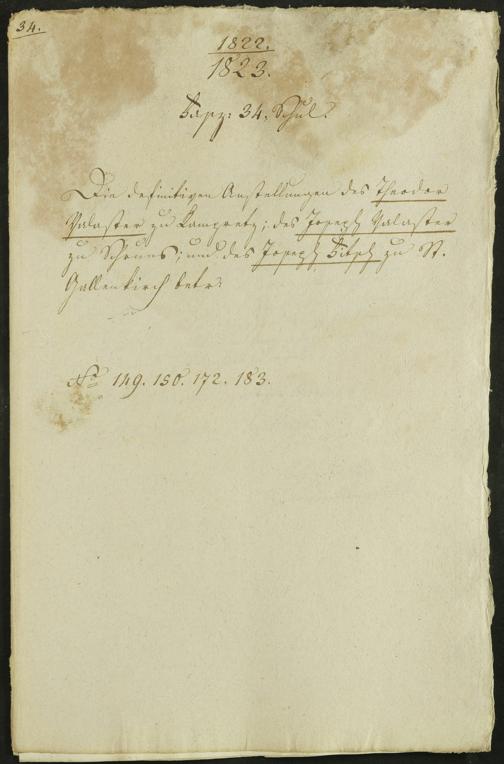 34.
1822.
1823.
Fasz: 34. Schul.
Die definitiven Anstellungen des Theodor
Valaster zu Lampretz; des Joseph Valaster
zu Schruns; und des Joseph Bitsch zu St.
Gallenkirch betr:
No 149. 150. 172. 183.